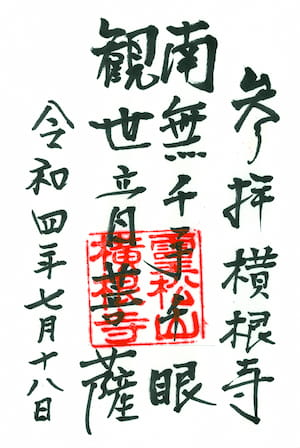 参拝横根寺
南無千手千眼
観世音菩薩
令和四年七月十八日
霊松山
横根寺